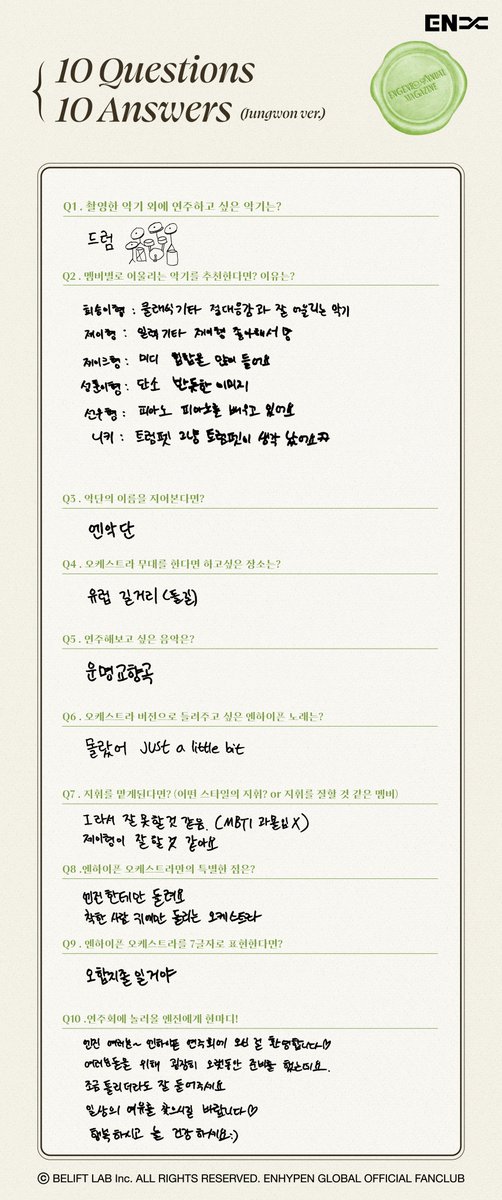 EN
10 Questions
10 Answers (Jungwon ver.)
ENGENE ANNUAL MAGAZINE
Q1 . 촬영한 악기 외에 연주하고 싶은 악기는?
드럼
Q2 . 멤버별로 어울리는 악기를 추천한다면? 이유는?
희승이형 : 클래식기타 절대음감과 잘 어울리는 악기
제이형 : 일렉기타 제이형 좋아해서
제이크형 : 미디 힙합을 많이 들어요
성훈이형 : 단소 반듯한 이미지
선우형 : 피아노 피아노를 배우고 있어요
니키 : 트럼펫 그냥 트럼펫이 생각 났어요ㅋㅋ
Q3 . 악단의 이름을 지어본다면?
엔악단
Q4 . 오케스트라 무대를 한다면 하고싶은 장소는?
유럽 길거리 (돌길)
Q5 . 연주해보고 싶은 음악은?
운명교향곡
Q6 . 오케스트라 버전으로 들려주고 싶은 엔하이픈 노래는?
몰랐어 Just a little bit
Q7 . 지휘를 맡게된다면? (어떤 스타일의 지휘? or 지휘를 잘할 것 같은 멤버)
I라서 잘 못할것 같음. (MBTI 과몰입 X)
제이형이 잘 할 것 같아요
Q8 .엔하이픈 오케스트라만의 특별한 점은?
엔진한테만 들려요
착한 사람 귀에만 들리는 오케스트라
Q9 . 엔하이픈 오케스트라를 7글자로 표현한다면?
오합지졸일거야
Q10 .연주회에 놀러올 엔진에게 한마디!
엔진 여러분~ 엔하이픈 연주회에 오신 걸 환영합니다♡
여러분들을 위해 굉장히 오랫동안 준비를 했는데요.
조금 틀리더라도 잘 들어주세요
일상의 여유를 찾으시길 바랍니다♡
행복하시고 늘 건강하세요:)
ⓒ BELIFT LAB Inc. ALL RIGHTS RESERVED. ENHYPEN GLOBAL OFFICIAL FANCLUB